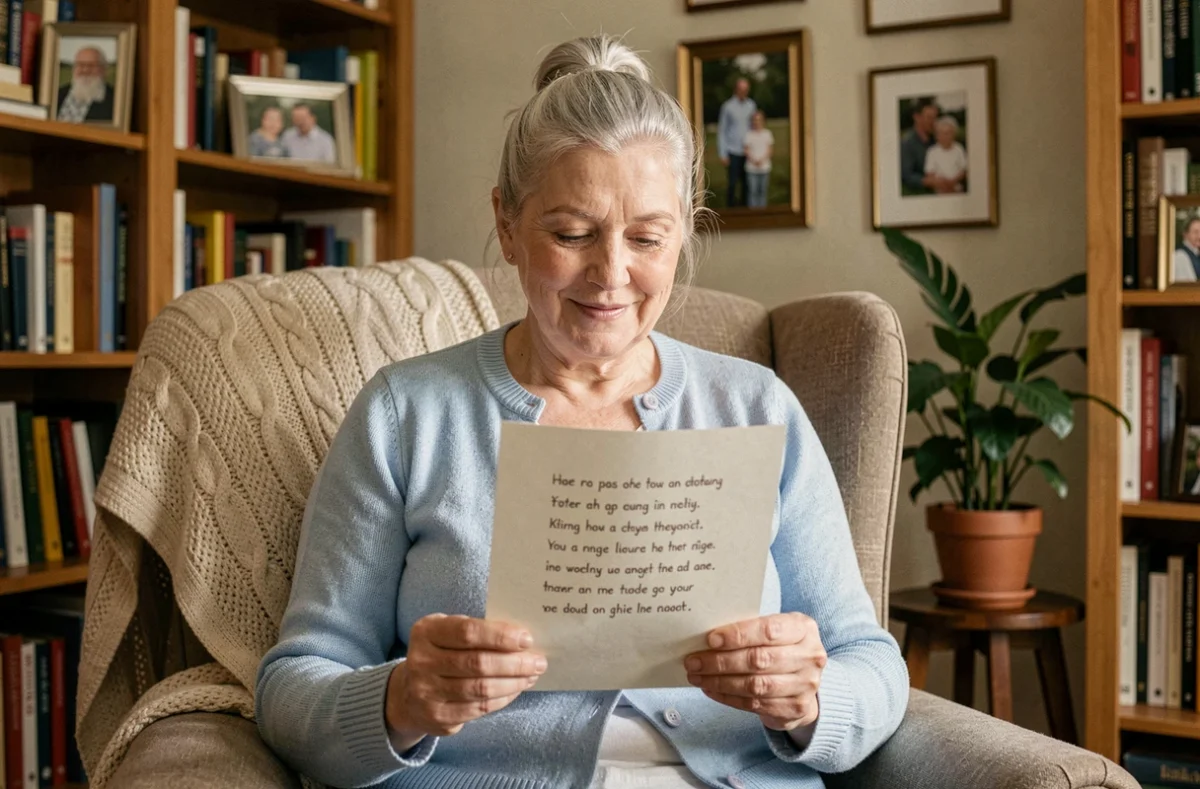 Hoe ro pas ohe fow an dofaing
Foter ah ap oung in neliy.
Klirng how a chyis theyonict.
You a rnge lieure he thet rige.
ine woclny uo anget the ad ane.
tnarer an me tiade go your
yoe doud on ghie lne naoot.